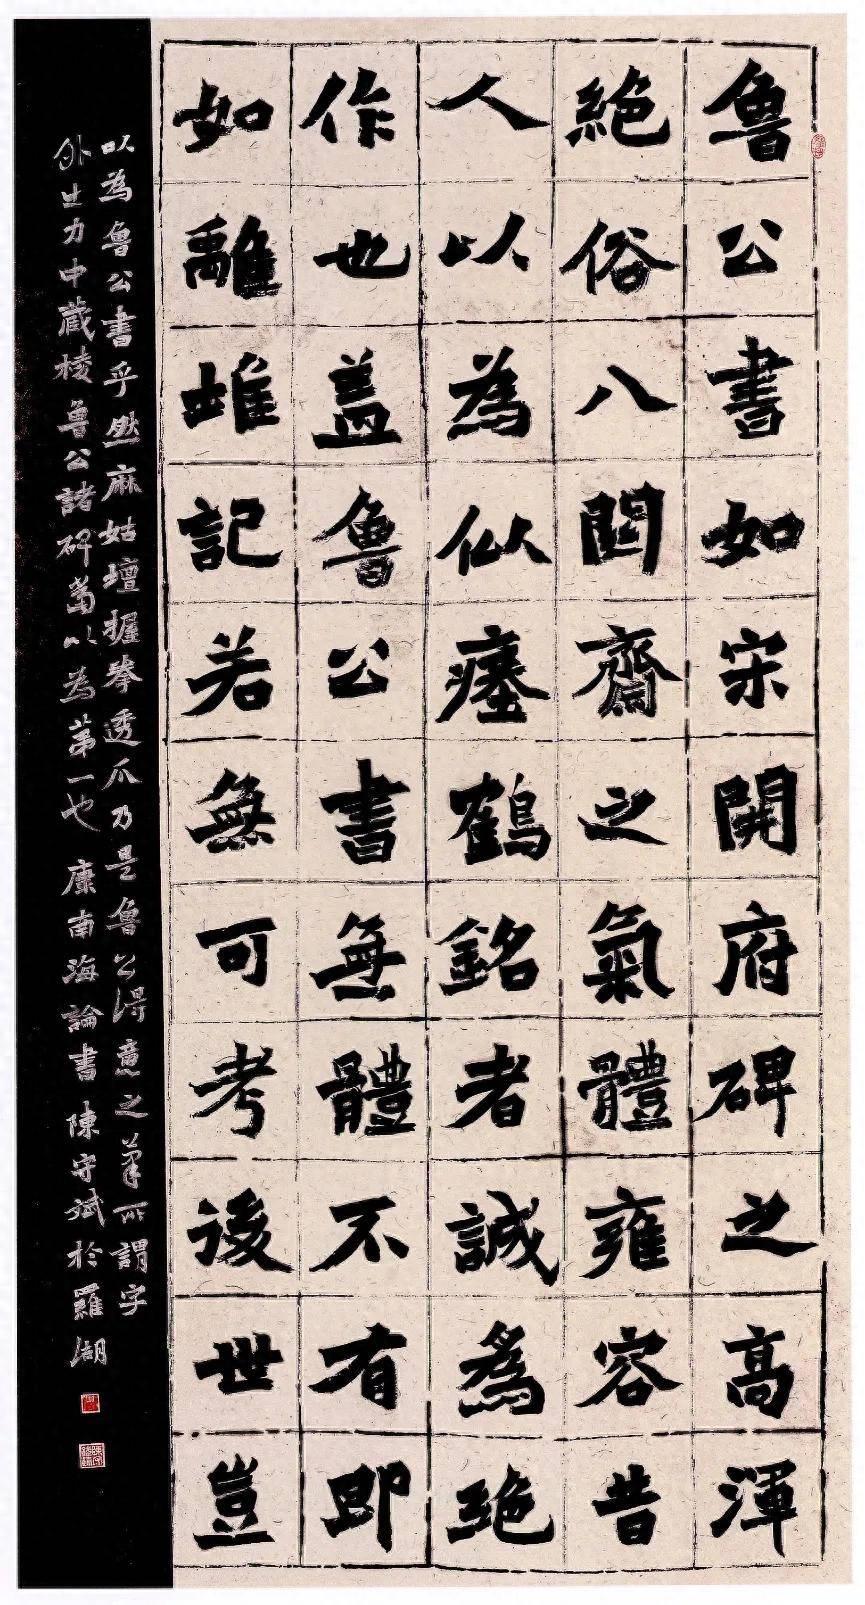 魯公書如宋開府碑之高渾
絶俗八關齋之氣體雍容昔
人以為似瘞鶴銘者誠爲絶
作也盖魯公書無體不有即
如離堆記若無可考後世豈
以為魯公書乎然麻姑壇握拳透爪乃是魯公得意之筆所謂字
外出力中藏棱魯公諸碑當以為第一也 康南海論書 陳守斌於羅湖